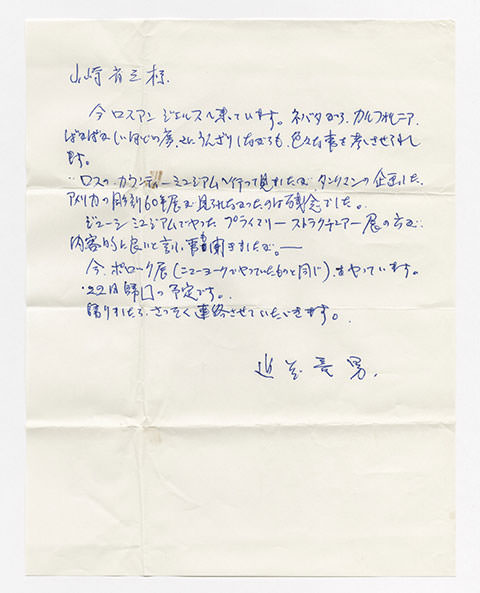 山崎省三様
今ロスアンジェルスへ来ています。ネバダから、カルフォルニア、
ばかばかしいほどの
うんざりしながらも、色々な事を考えさせられし
ます。
ロスの、カウンティーミュジアムへ行って見ましたが、タックマンの企画した、
アメリカの彫刻60年展が見れなかったのは残念でした。
ジューシミュジアムでやった プライマリーストラクチュアー展の方が
内容的に良いと言う事も聞きましたが。—
今、ポロック展(ニューヨークでやっていたものと同じ)をやっています。
22日帰日の予定です。
帰りましたら、さっそく連絡させていただきます。
近
長男.